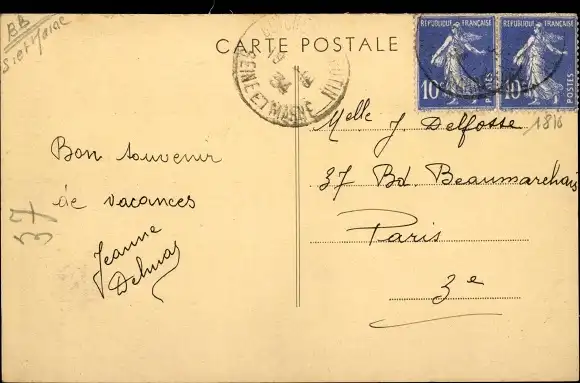 S. et Marne
CARTE POSTALE
SEINE ET MARNE
34
REPUBLIQUE FRANÇAISE
10
POSTES
REPUBLIQUE FRANÇAISE
10
POSTES
1816
Bon souvenir
de vacances
Jeanne
Delmas
37
Melle J. Delfosse
37 Bd. Beaumarchais
Paris
3e